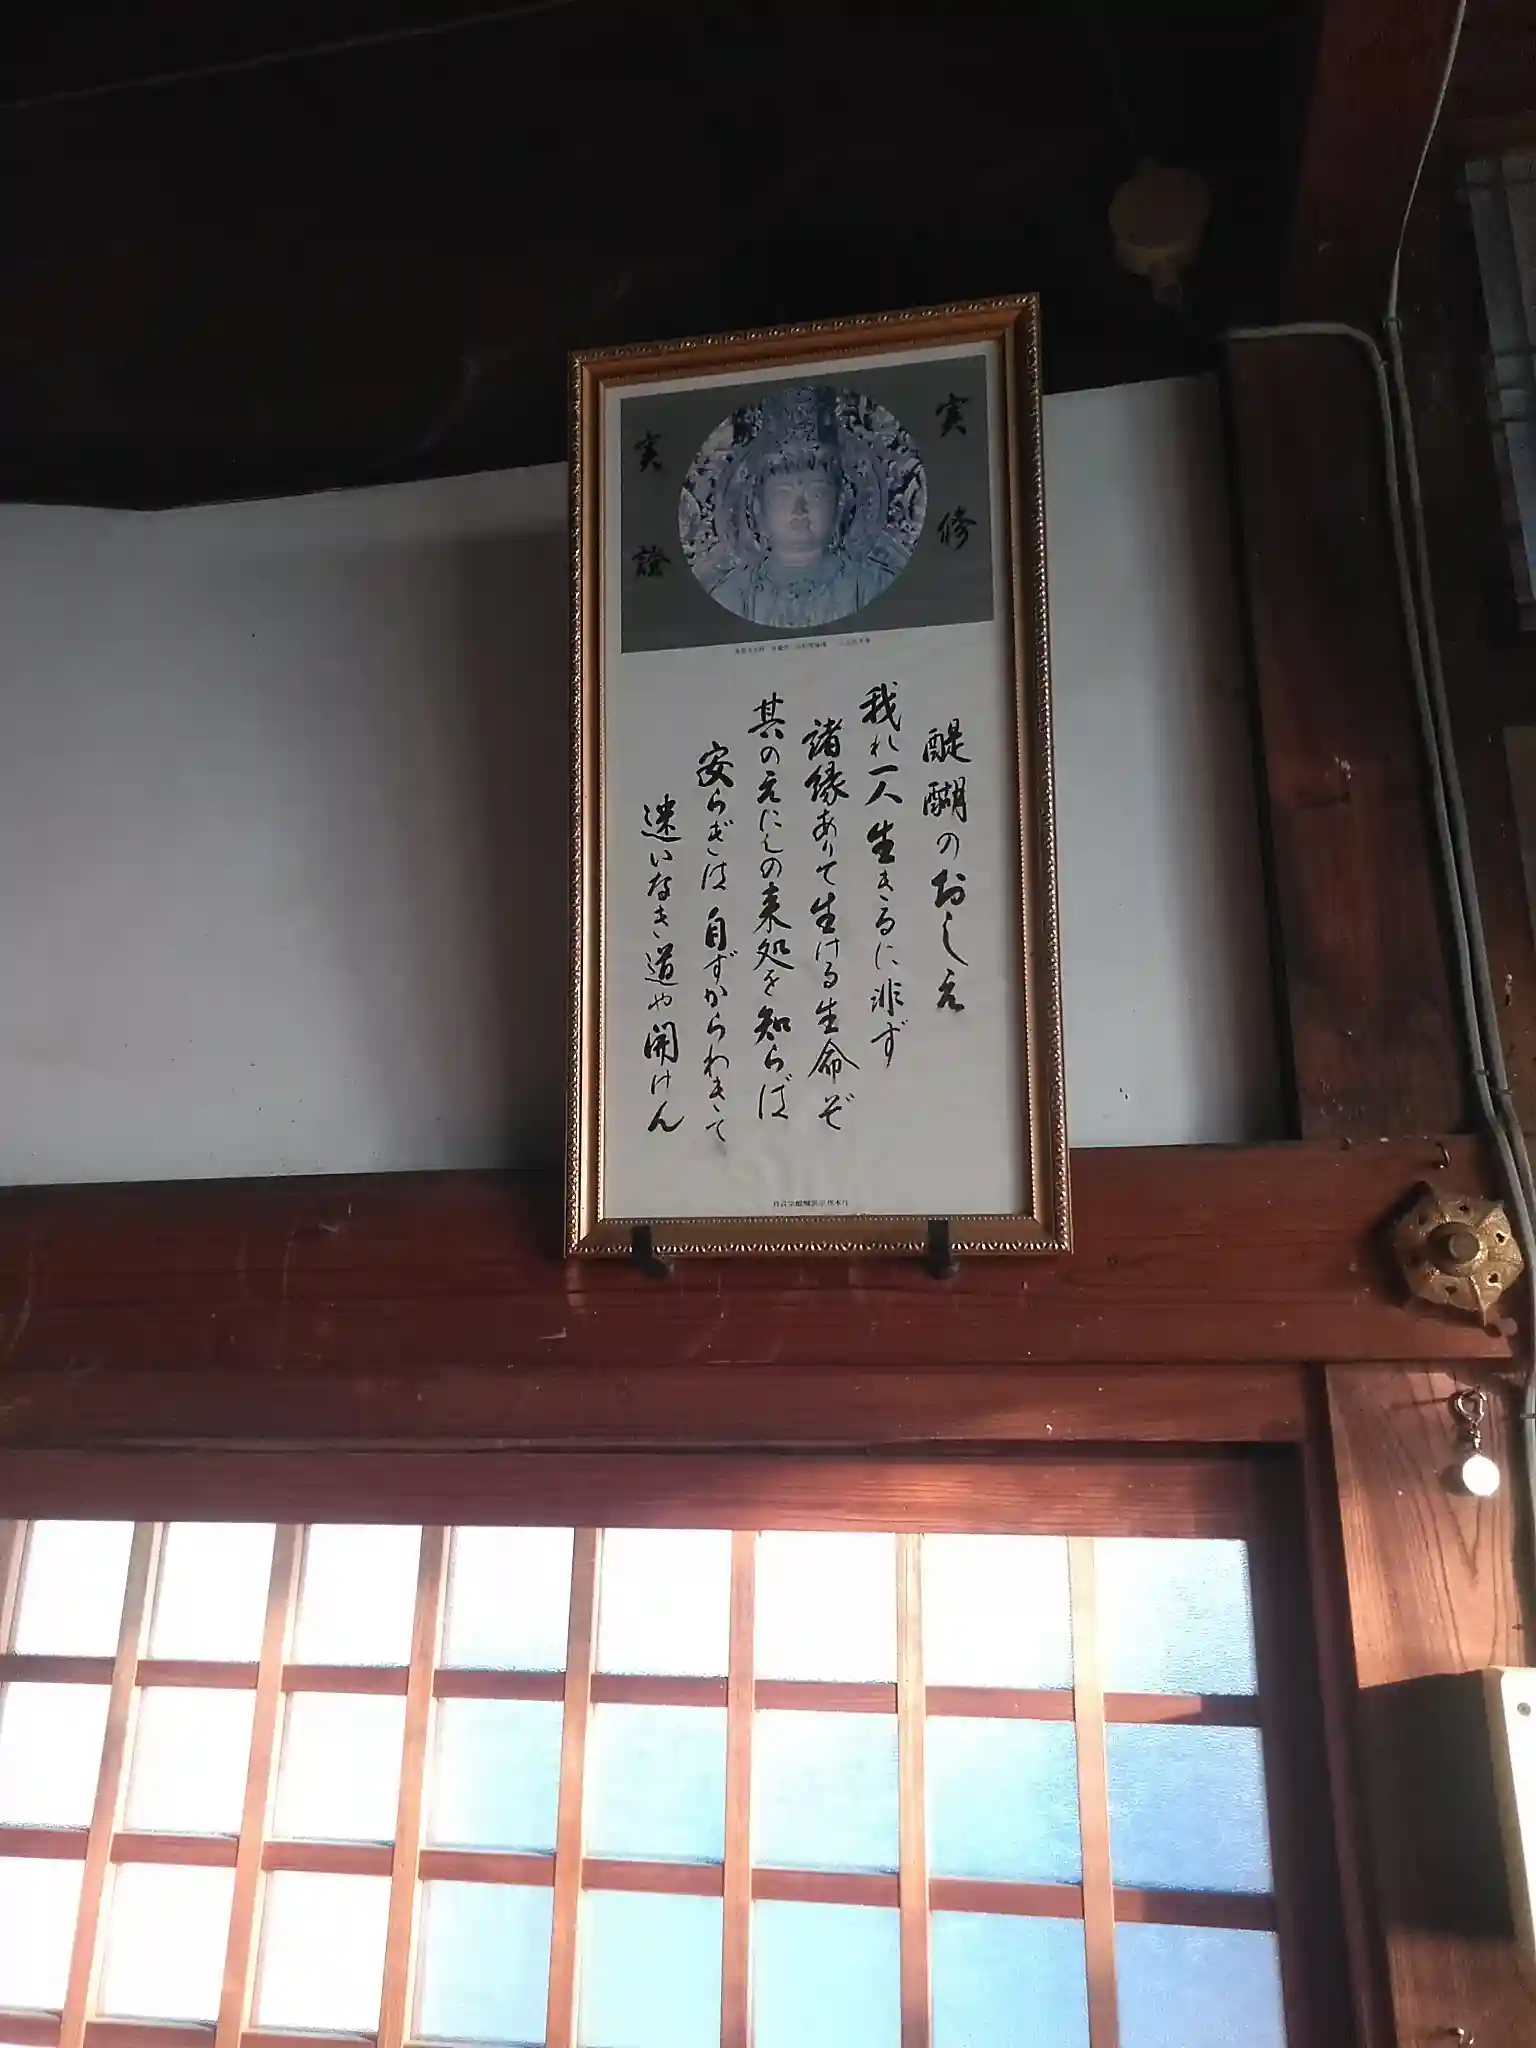 実修
実證
醍醐のおしえ
我れ一人生きるに非ず
諸縁ありて生ける生命ぞ
其のえにしの来処を知らば
安らぎは自ずからわきて
迷いなき道や開けん